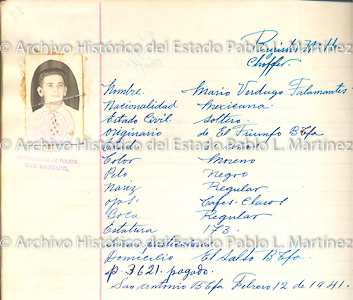 © Archivo Histórico del Estado Pablo L. Martínez
Registro No. 16
Choffer.
Nombre Mario Verdugo Talamantes
Nacionalidad Mexicana
Estado Civil Soltero
Originario de El Triunfo B Cfa
Edad años
Color Moreno
Pelo Negro
Nariz Regular
Ojos. Cafes Claros
Boca Regular
Estatura 173
Señas particulares
Domicilio El Salto B Cfa.
p. 3621. pagado.
San Antonio B Cfa Febrero 12 de 1941.
DE POLICIA
SAN ANTONIO,
© Archivo Histórico del Estado Pablo L. Martínez
© Archivo Histórico del Estado Pablo L. Martínez
© Archivo Histórico del Estado Pablo L. Martínez